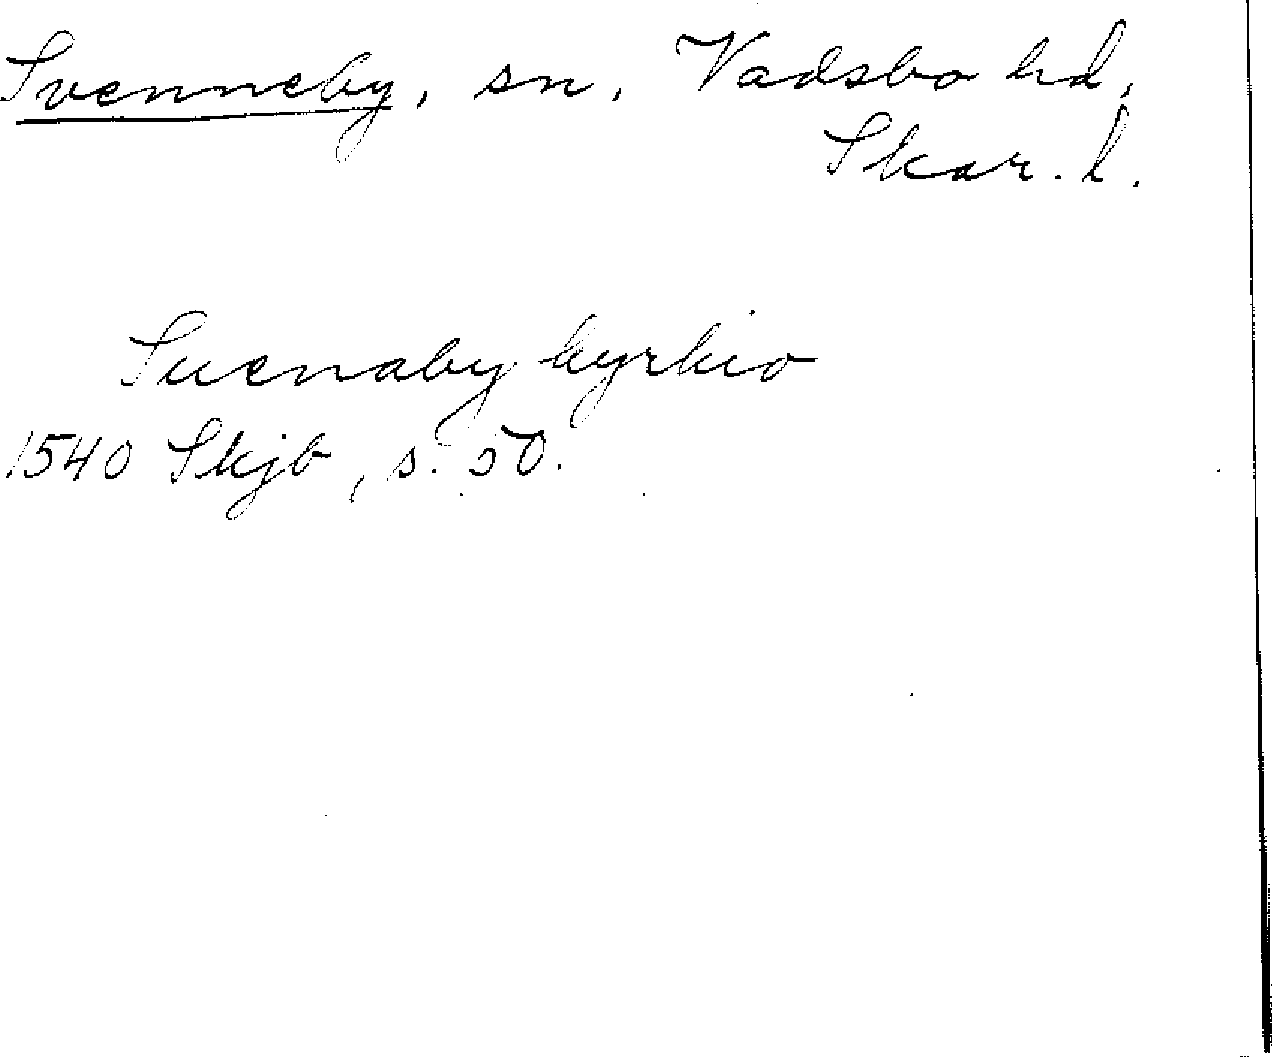 Svenneby, sn, Vadsbo hd,
Skar. l.
Suenaby kyrkio
1540 Skjb, s. 50.